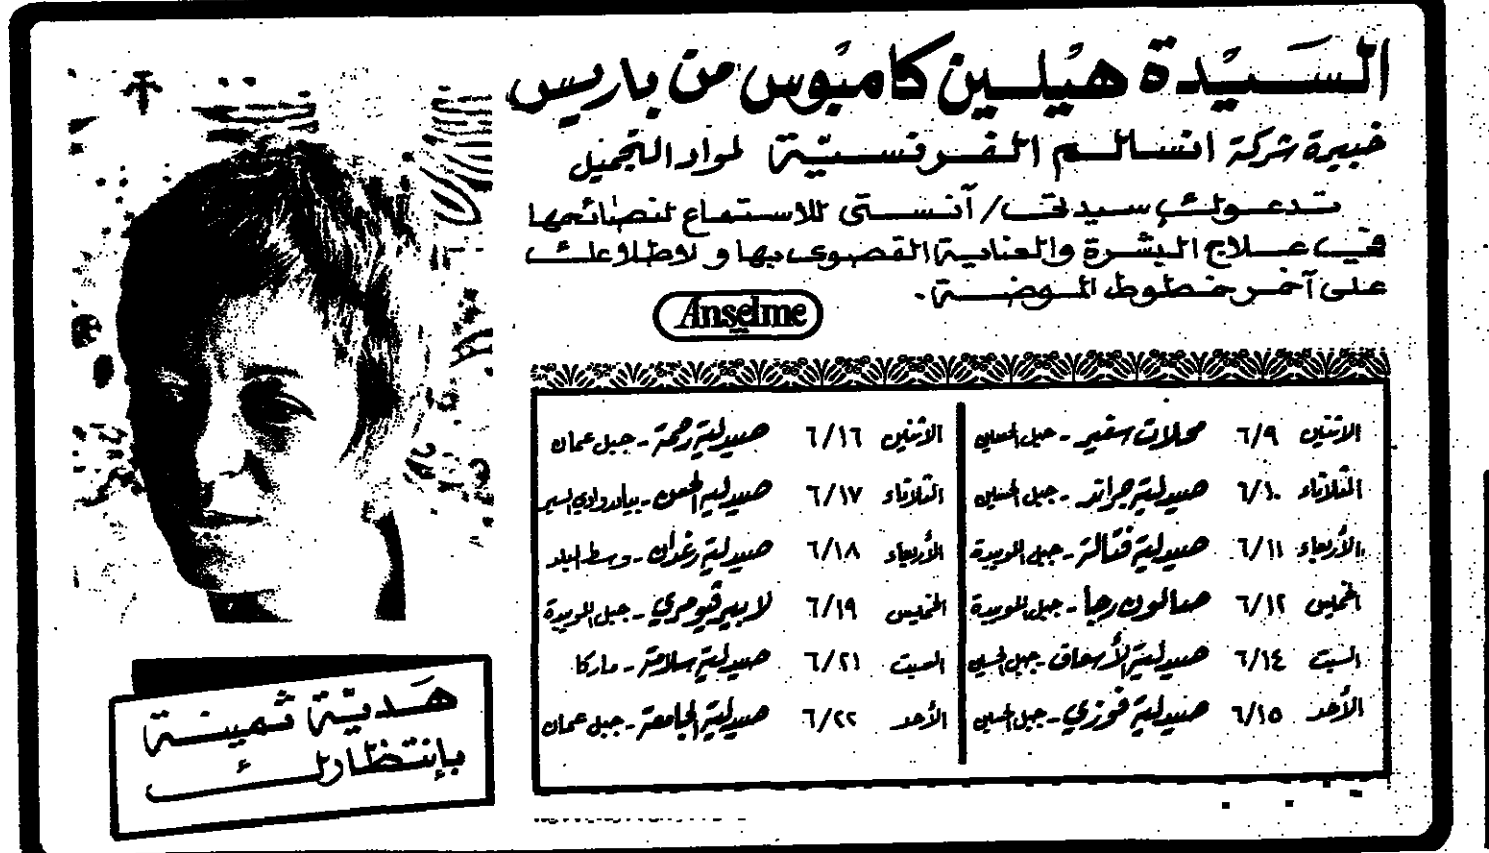 السَيّدة هيُلين كامبُوس من باريس
خبيرة شركة انسالم الفرنسيّة لمواد التجميل
تدعوك سيدتي/ آنستي للاستماع لنصائحها
في علاج البشرة والعناية القصوى بها و لاطلاعك
على آخر خطوط الموضة.
Anselme
الاثنين ٦/٩ محلات سفير - جبل الحسين
الثلاثاء ٦/١٠ صيدلية جراند - جبل الحسين
الأربعاء ٦/١١ صيدلية قتالة - جبل اللويبدة
الخميس ٦/١٢ صالون رجا - جبل اللويبدة
السبت ٦/١٤ صيدلية الأسعاف - جبل الحسين
الأحد ٦/١٥ صيدلية فوزي - جبل الحسين
الاثنين ٦/١٦ صيدلية رحمة - جبل عمان
الثلاثاء ٦/١٧ صيدلية الحصن - بيادر وادي السير
الأربعاء ٦/١٨ صيدلية رغدان - وسط البلد
الخميس ٦/١٩ لابيرفيومري - جبل اللويبدة
السبت ٦/٢١ صيدلية سلامة - ماركا
الأحد ٦/٢٢ صيدلية الجامعة - جبل عمان
هَديّة ثمينة
بإنتظارك